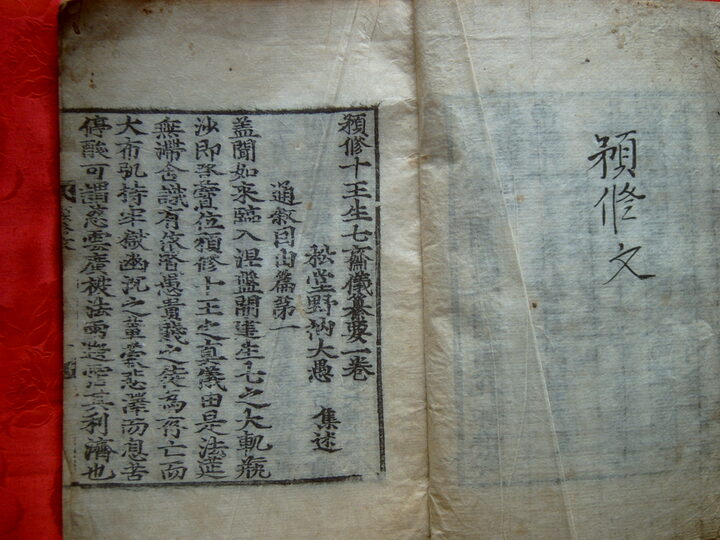 預修文
預修十王生七齋儀纂要一卷
松堂野衲大愚 集述
通叙因由篇第一
盖聞如來臨入涅盤開建生七之大軌瓶
沙即登寶位預修十王之真儀由是法筵
無滯含識有依普爲貴賤之徒爲存亡而
大布 持牢獄幽沉之輩蒙慈澤而息苦
停酸可謂慈雲廣 法雨 其利濟也